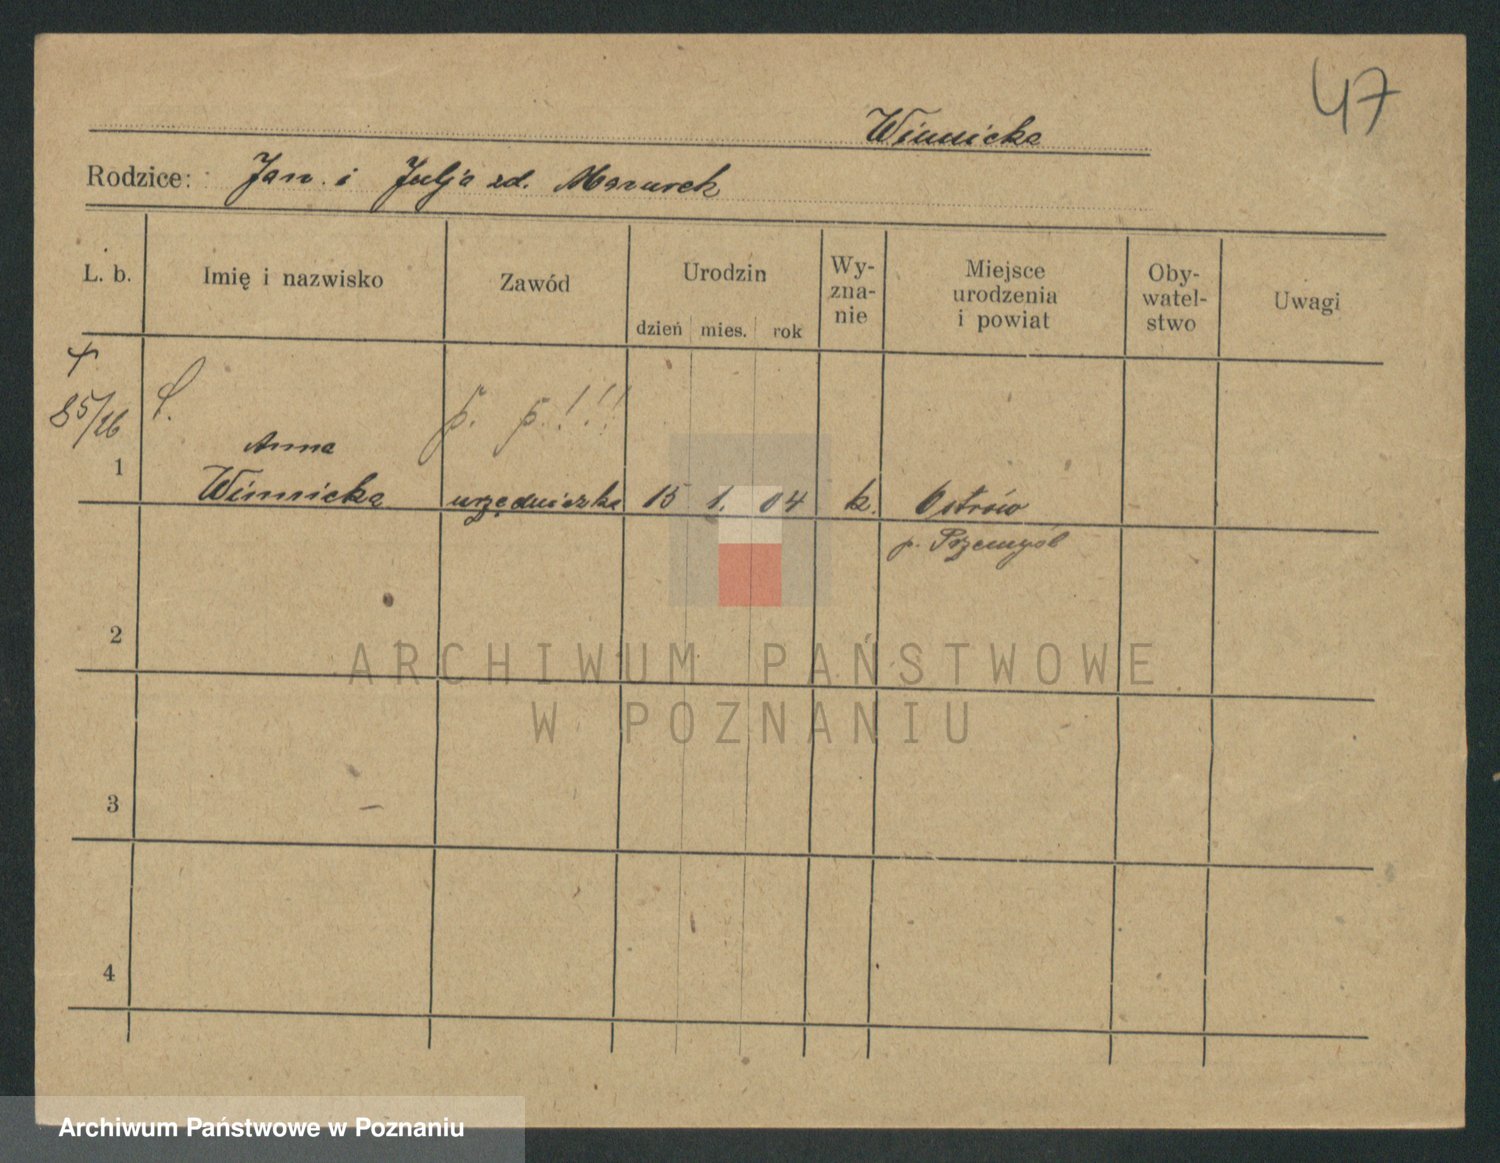 47
Winnicka
Rodzice: Jan i Julja zd. Mazurek
L. b.
Imię i nazwisko
Zawód
Urodzin
dzień mies. rok
Wy-
zna-
nie
Miejsce
urodzenia
i powiat
Oby-
watel-
stwo
Uwagi
85/26
p. p.!!!
1
Anna
Winnicka urzędniczka 15 1. 04 k. Ostrów
p. Przemyśl
2
3
4
ARCHIWUM PAŃSTWOWE
W POZNANIU
Archiwum Państwowe w Poznaniu